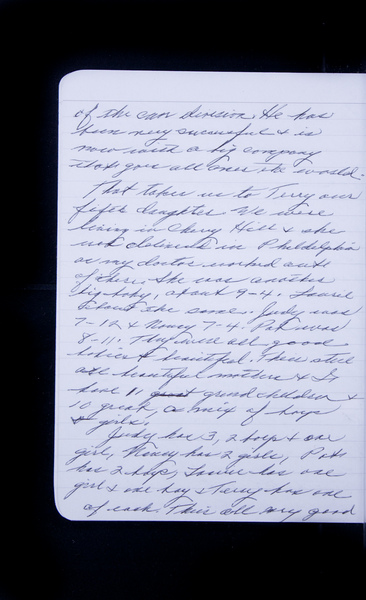 of the car division. He has
been very successful & is
now with a big company
that goes all over the world.
That takes us to Terry our
fifth daughter. We were
living in Cherry Hill & she
was delivered in Philadelphia
as my doctor worked out
of there. She was another
big baby, about 9-4. Laurie
about the same. Judy was
7-12 & Nancy 7-4. Pat was
8-11. They were all good
babies & beautiful. These still
are beautiful mothers & I
have 11 grand children &
10 great, a mix of boys
& girls.
Judy has 3, 2 boys & one
girl, Nancy has 2 girls, Pat
has 2 boys, Laurie has one
girl & one boy & Terry has one
of each. They all very good